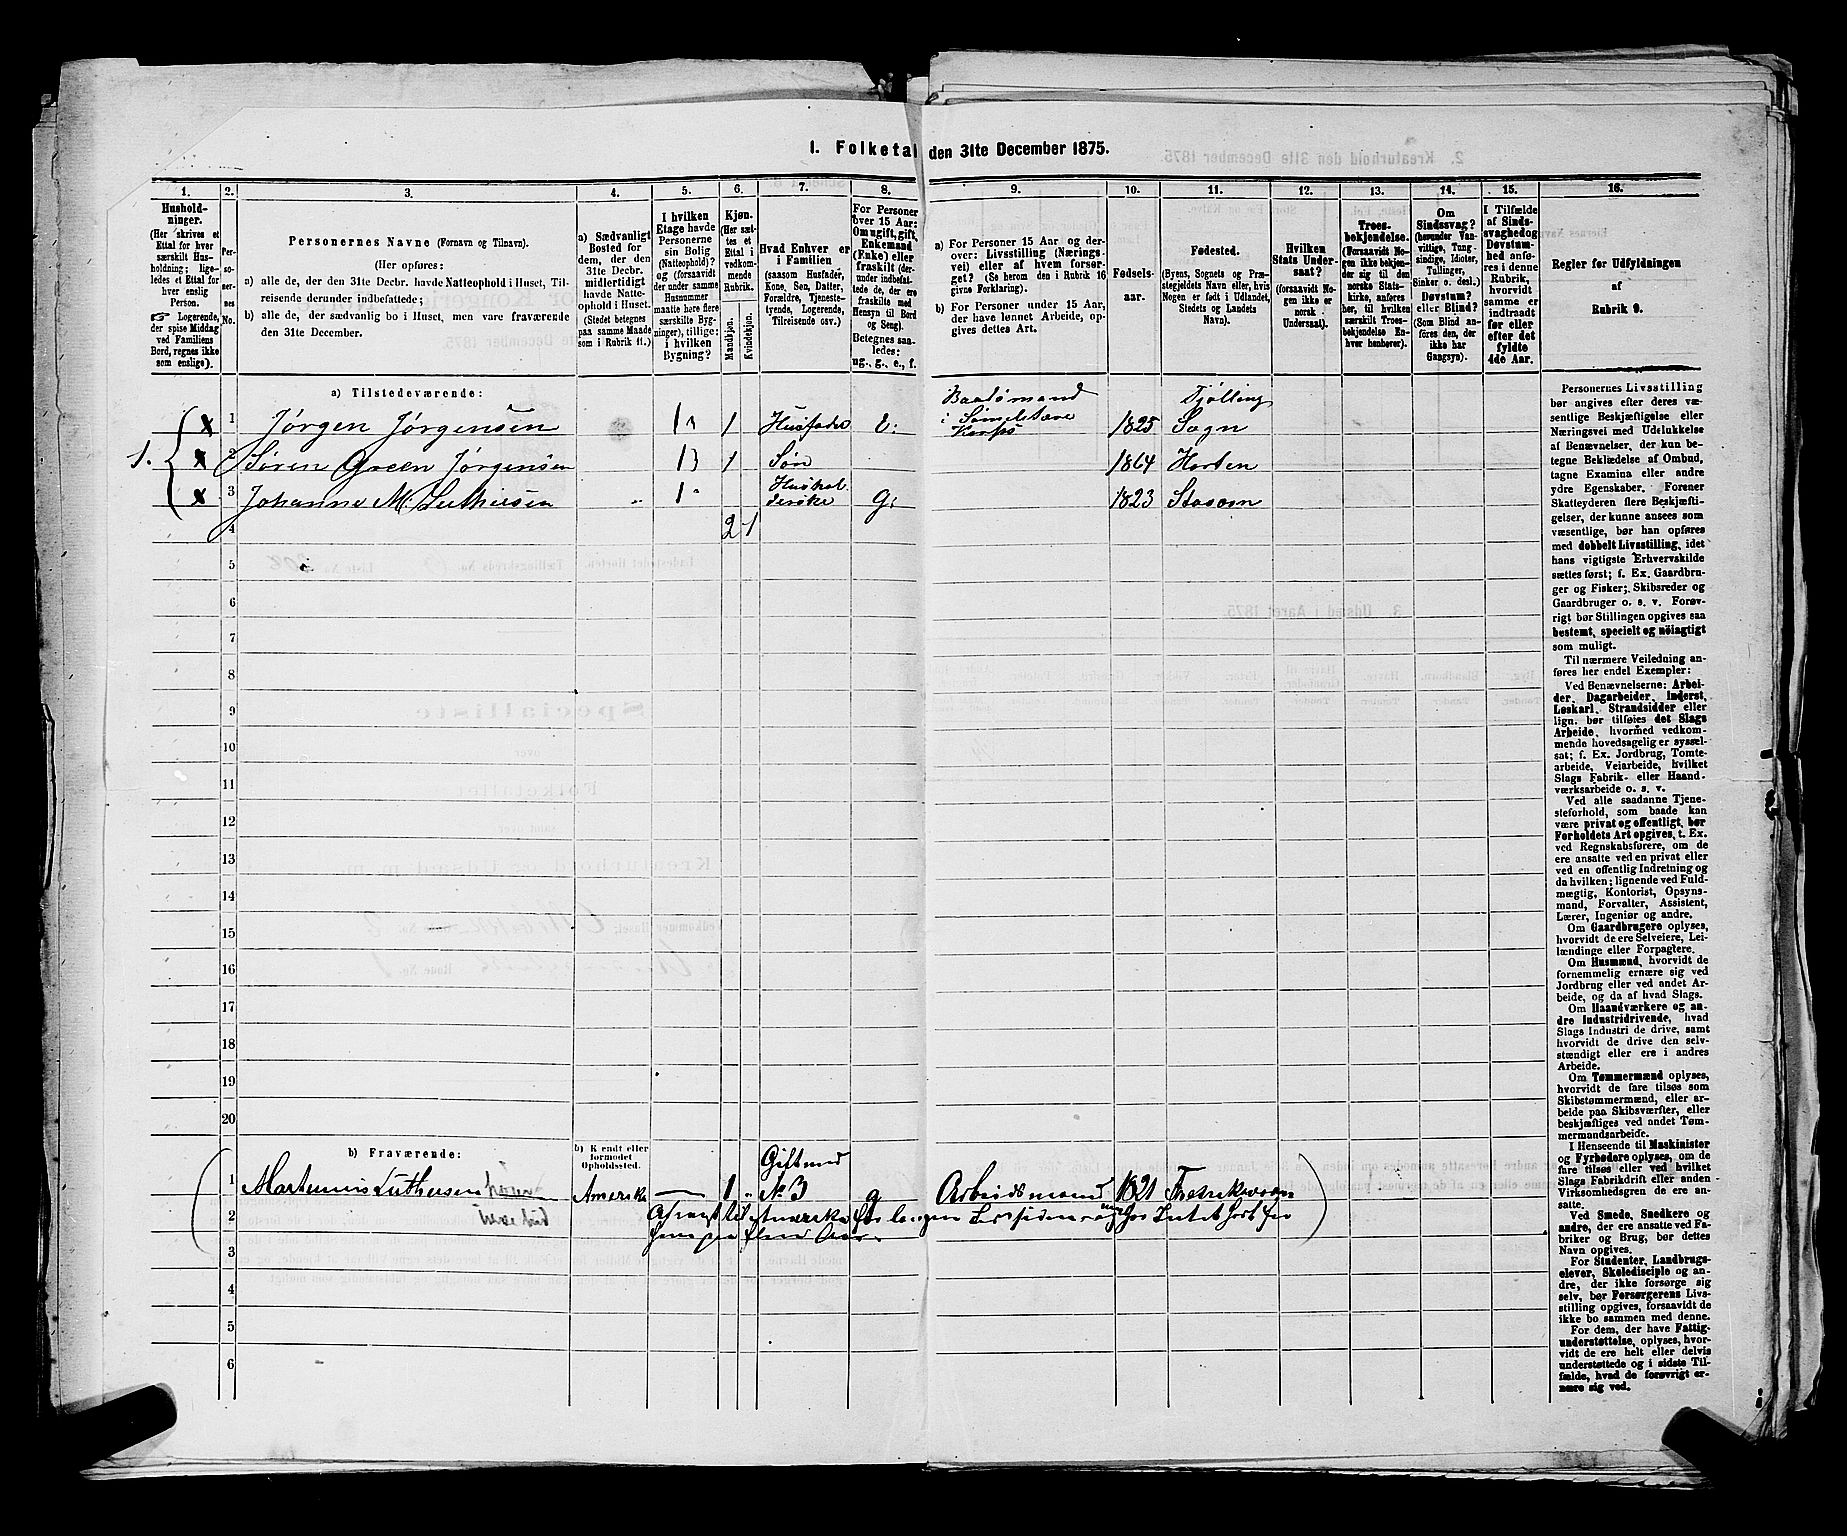 1. Folketal den 31te December 1875.
1. 2. 3. 4. 5. 6. 7. 8. 9. 10. 11. 12. 13. 14. 15. 16.
Hushold-
ninger.
(Her skrives et
Ettal for hver
særskilt Hus-
holdning; lige-
ledes et Ettal for
hver enslig
Person.
Logerende,
der spise Middag
ved Familiens
Bord, regnes ikke
som enslige).
Per-
so-
ner-
nes
No.
Personernes Navne (Fornavn og Tilnavn).
(Her opføres:
a) alle de, der den 31te Decbr. havde Natteophold i Huset, Til-
reisende derunder indbefattede;
b) alle de, der sædvanlig bo i Huset, men vare fraværende
den 31te December.
a) Sædvanligt
Bosted for
dem, der den
31te Decbr.
midlertidigt
havde Natte-
ophold i Huset.
(Stedet betegnes
paa samme Maade
som i Rubrik 11.)
I hvilken
Etage havde
Personerne
sin Bolig
(Natteophold)?
og (forsaavidt
der under samme
Husnummer
maatte høre flere
særskilte Byg-
ninger), tillige:
i hvilken
Bygning?
Kjøn.
(Her sæt-
tes et
Ettal i
vedkom-
mende
Rubrik.
Mandkjøn.
Kvindekjøn.
Hvad Enhver er
i Familien
(saasom Husfader,
Kone, Søn, Datter,
Forældre, Tjeneste-
tyende, Logerende,
Tilreisende osv.)
For Personer
over 15 Aar:
Om ugift, gift,
Enkemand
(Enke) eller
fraskilt (der-
under indbefat-
tede de, der ere
fraskilte med
Hensyn til Bord
og Seng).
Betegnes saa-
ledes:
ug., g., e., f.
a) For Personer 15 Aar og der-
over: Livsstilling (Nærings-
vei) eller af hvem forsør-
get? (Se herom den i Rubrik 16
givne Forklaring).
b) For Personer under 15 Aar,
der have lønnet Arbeide, op-
gives dettes Art.
Fødsels-
aar.
Fødested.
(Byens, Sognets og Præ-
stegjeldets Navn eller, hvis
Nogen er født i Udlandet,
Stedets og Landets
Navn).
Hvilken
Stats Under-
saat?
(forsaavidt No-
gen ikke er
norsk
Undersaat).
Troes-
bekjendelse.
(Forsaavidt No-
gen ikke bekjen-
der sig til den
norske Stats-
kirke, anføres
her, til hvilken
særskilt Troes-
bekjendelse En-
hver henhører).
Om
Sindssvag?
(herunder Van-
vittige, Tung-
sindige, Idioter,
Tullinger,
Sinker o. desl.)
Døvstum?
eller Blind?
(Som Blind an-
føres den, der
ikke har
Gangsyn).
I Tilfælde
af Sinds-
svaghed og
Døvstum-
hed anfø-
res i denne
Rubrik,
hvorvidt
samme er
indtraadt
før eller
efter det
fyldte
4de Aar.
Regler for Udfyldningen
af
Rubrik 9.
a) Tilstedeværende:
1. x 1 Jørgen Jørgensen 1 1 Husfader e. Baadsmand i Sømilitære Korps 1825 Tjølling Sogn
x 2 Søren Green Jørgensen 1 1 Søn 1864 Horten
x 3 Johanne M. Luthersen 1 Hushol- derske g. 1823 Stavern
4 2 1
5
6
7
8
9
10
11
12
13
14
15
16
17
18
19
20
b) Fraværende:
b) Kjendt eller
formodet
Opholdssted.
1 Martinius Luthersen Amerika 1 Gift med No 3 g Arbeidsmand 1821 Fredriksværn
2 til Amerika for længere
3
4
5
6
Personernes Livsstilling
bør angives efter deres væ-
sentlige Beskjæftigelse eller
Næringsvei med Udelukkelse
af Benævnelser, der kun be-
tegne Beklædelse af Ombud,
tagne Examina eller andre
ydre Egenskaber. Forener
Skatteyderen flere Beskjæfti-
gelser, der kunne ansees som
væsentlige, bør han opføres
med dobbelt Livsstilling, idet
hans vigtigste Erhvervskilde
sættes først; f. Ex. Gaardbru-
ger og Fisker; Skibsreder og
Gaardbruger o. s. v. Forøv-
rigt bør Stillingen opgives saa
bestemt, specielt og nöiagtigt
som muligt.
Til nærmere Veiledning an-
føres her endel Exempler:
Ved Benævnelserne: Arbei-
der, Dagarbeider, Inderst,
Løskarl, Strandsidder eller
lign. bør tilføies det Slags
Arbeide, hvormed vedkom-
mende hovedsagelig er syssel-
sat; f. Ex. Jordbrug, Tomte-
arbeide, Veiarbeide, hvilket
Slags Fabrik- eller Haand-
værksarbeide o. s. v.
Ved alle saadanne Tjene-
steforhold, som baade kan
være privat og offentligt, bør
Forholdets Art opgives, t. Ex.
ved Regnskabsførere, om de
ere ansatte ved en privat eller
ved en offentlig Indretning og
da hvilken; lignende ved Fuld-
mægtig, Kontorist, Opsyns-
mand, Forvalter, Assistent,
Lærer, Ingeniør og andre.
Om Gaardbrugere oplyses,
hvorvidt de ere Selveiere, Lei-
lændinge eller Forpagtere.
Om Husmænd, hvorvidt de
fornemmelig ernære sig ved
Jordbrug eller ved andet Ar-
beide, og da af hvad Slags.
Om Haandværkere og an-
dre Industridrivende, hvad
Slags Industri de drive, samt
hvorvidt de drive den selv-
stændigt eller ere i andres
Arbeide.
Om Tømmermænd oplyses,
hvorvidt de fare tilsøs som
Skibstømmermænd, eller ar-
beide paa Skibsværfter, eller
beskjæftiges ved andet Tøm-
mermandsarbeide.
I Henseende til Maskinister
og Fyrbødere oplyses, om de
fare tilsøs eller ved hvilket
Slags Fabrikdrift eller anden
Virksomhedsgren de ere an-
satte.
Ved Smede, Snedkere og
andre, der ere ansatte ved Fa-
briker og Brug, bør dettes
Navn opgives.
For Studenter, Landbrugs-
elever, Skoledisciple og an-
dre, der ikke forsørge sig
selv, bør Forsørgerens Livs-
stilling opgives, forsaavidt de
ikke bo sammen med denne.
For dem, der have Fattig-
understøttelse, oplyses, hvor-
vidt de ere helt eller delvis
understøttede og i sidste Til-
fælde, hvad de forøvrigt er-
nære sig ved.